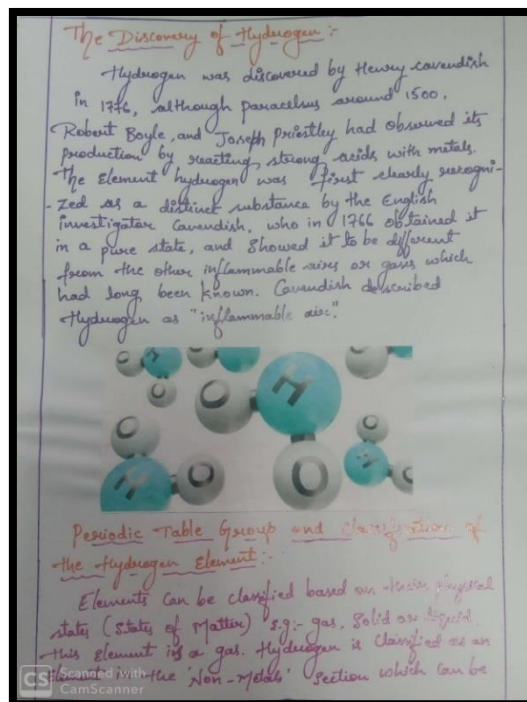 The Discovery of Hydrogen :-
Hydrogen was discovered by Henry cavendish
in 1776, although paracelsus around 1500.
Robert Boyle, and Joseph Priestley had observed its
production by reacting strong acids with metals.
The Element hydrogen was first clearly recogni-
-zed as a distinct substance by the English
investigator Cavendish, who in 1766 obtained it
in a pure state, and showed it to be different
from the other inflammable aires or gases which
had long been known. Cavendish described
Hydrogen as "inflammable air".
H
O
O
H
O
H
O
O
H
O
Periodic Table Group and classification of
the Hydrogen Element :-
Elements can be classified based on their physical
states (States of Matter) e.g:- gas, Solid or liquid.
this element is a gas. Hydrogen is classified as an
Element in the 'Non-Metals' Section which can be
CS Scanned with
CamScanner